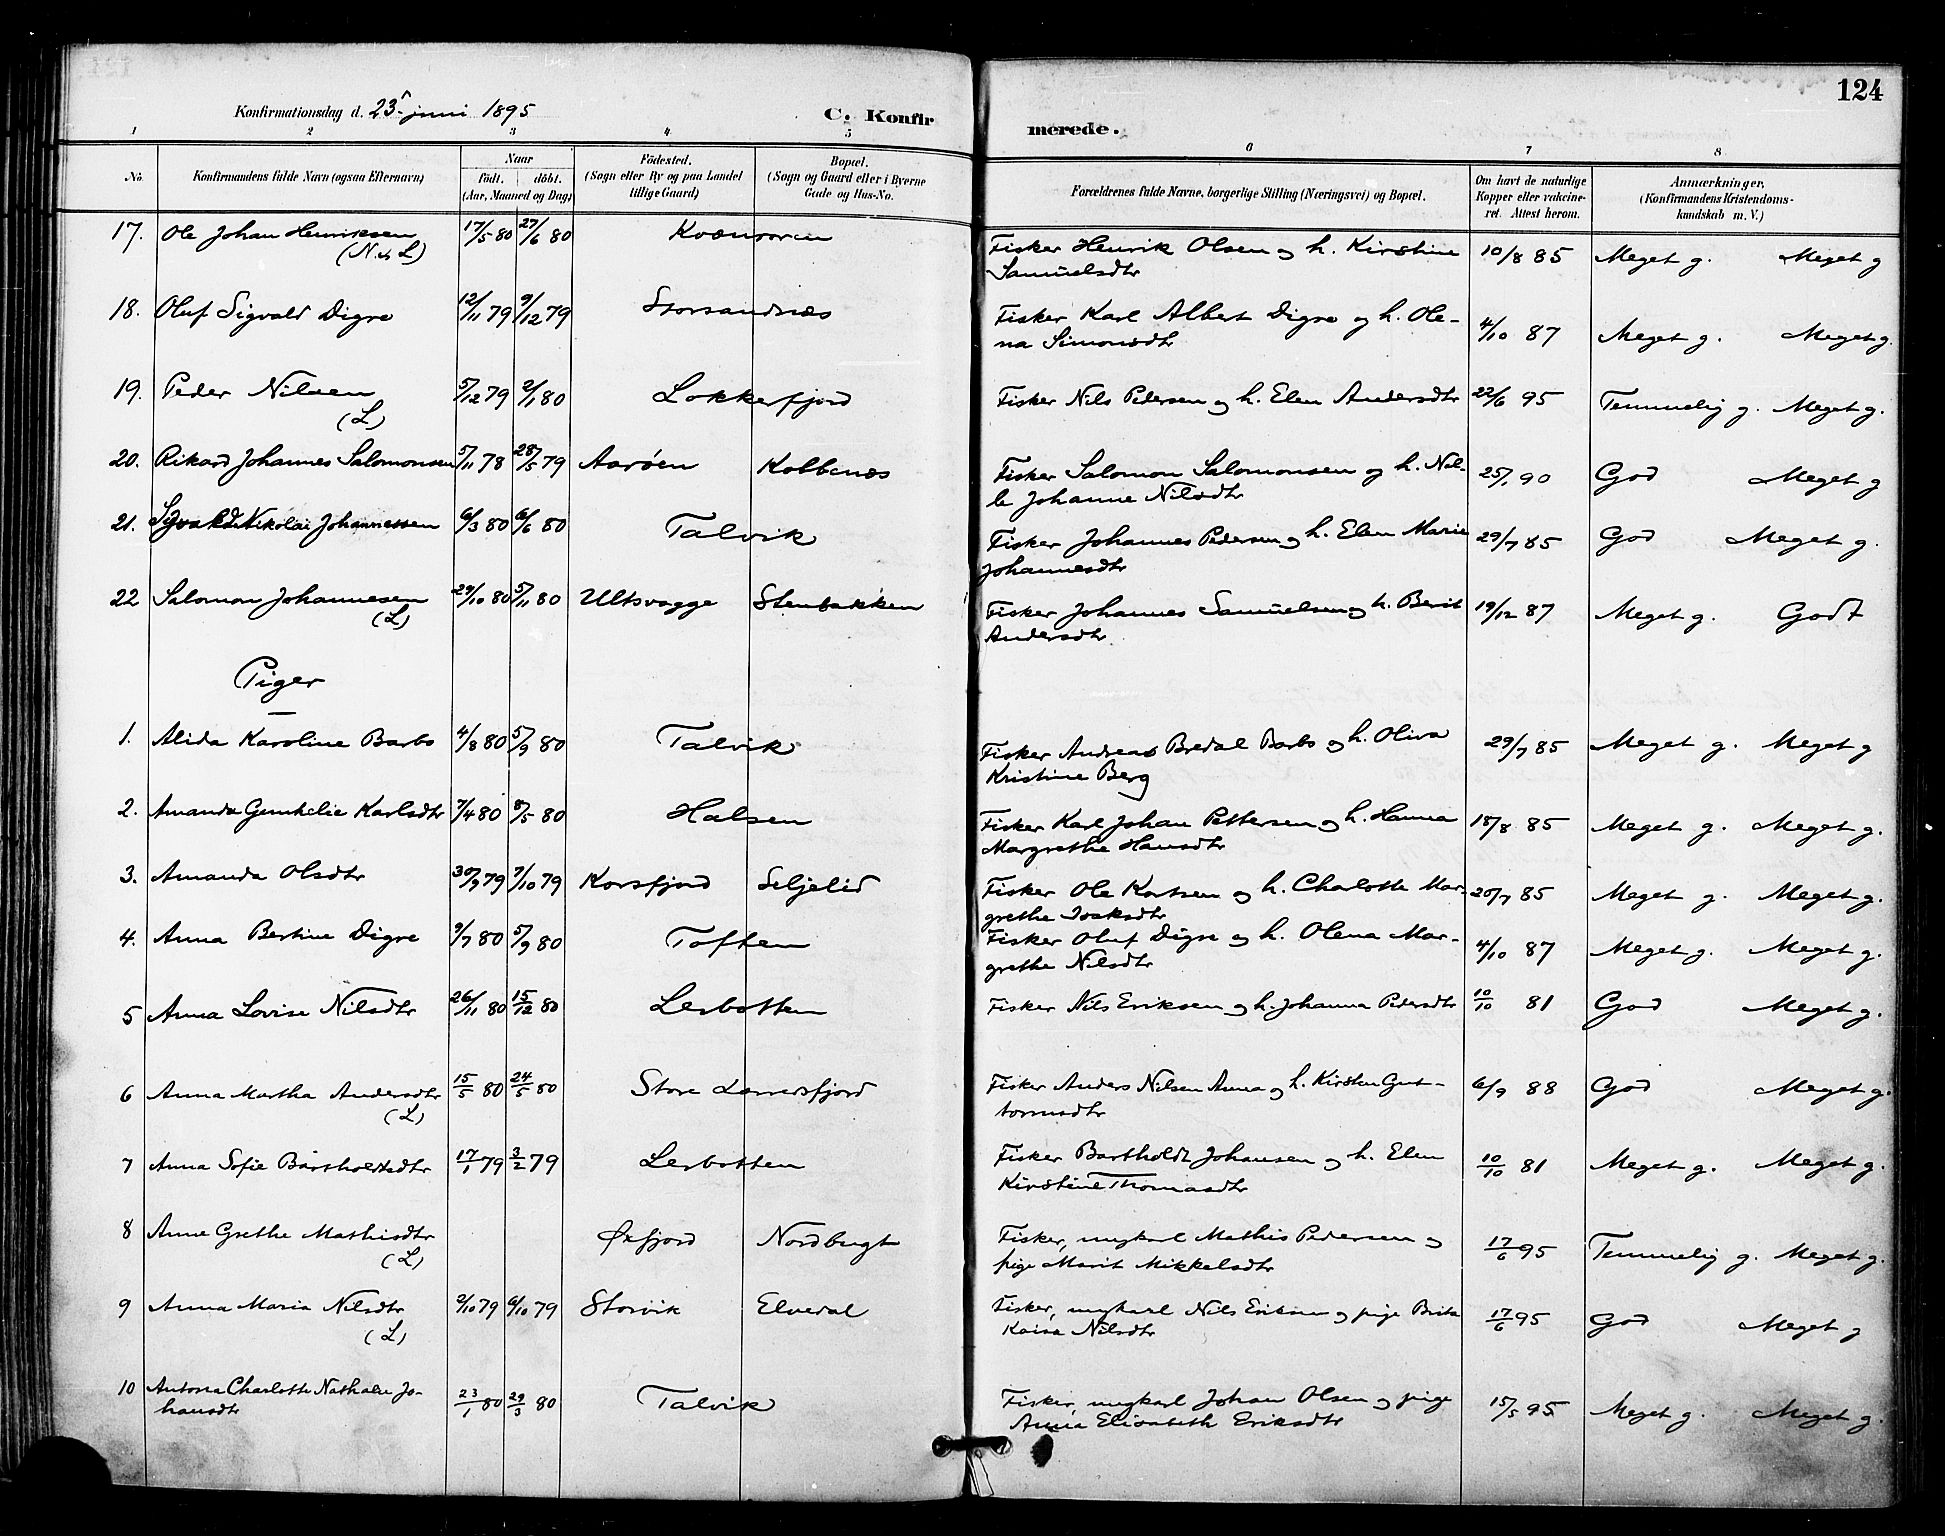 124
Konfirmationsdag d. 23. juni 1895
C. Konfirmerede.
1 2 3 4 5 6 7 8
No. Konfirmandens fulde Navn (ogsaa Efternavn) Naar født. døbt. (Aar, Maaned og Dag) Födested. (Sogn eller By og paa Landet tillige Gaard) Bopæl. (Sogn og Gaard eller i Byerne Gade og Hus-No. Forældrenes fulde Navne, borgerlige Stilling (Næringsvei) og Bopæl. Om havt de naturlige Kopper eller vakcineret. Attest herom. Anmærkninger, (Konfirmandens Kristendomskundskab m. V.)
17. Ole Johan Henriksen 17/5 80 27/6 80 Fisker Henrik Olsen og h. Kirstine 10/8 85 Meget g. Meget g
(N. & L) Samuelsdtr
18. Oluf Sigvald Digre 12/11 79 9/12 79 Storsandnæs Fisker Karl Albert Digre og h. Ole- 4/10 87 Meget g. Meget g.
na Simonsdtr
19. Peder Nilsen 5/12 79 2/1 80 Lokkerfjord Fisker Nils Pedersen og h. Elen Andersdtr 22/6 95 Temmelig g. Meget g.
(L)
20. Rikard Johannes Salomonsen 5/11 78 28/5 79 Aarøen Kobbenæs Fisker Salomon Salomonsen og h. Nil- 90 God Meget g
le Johanne Nilsdtr
21. Nikolai Johannessen 6/3 80 6/6 80 Talvik Fisker Johannes Pedersen og h. Elen Marie 29/7 85 God Meget g.
Johannesdtr
22 Salomon Johannesen 29/10 80 5/11 80 Ultsvagge Stenbakken Fisker Johannes Samuelsen og h. Berit 19/12 87 Meget g. Godt
(L) Andersdtr.
Piger
1. Alida Karoline Barbo 4/8 80 5/9 80 Talvik Fisker Andreas Bredal Barbo og h. Oliva 29/7 85 Meget g. Meget g
Kristine Berg
2. Amanda Karlsdtr 7/4 80 8/5 80 Halsen Fisker Karl Johan Pettersen og h. Hanna 18/8 85 Meget g. Meget g.
Margrethe Hansdtr
3. Amanda Olsdtr 30/9 79 7/10 79 Korsfjord Seljelid Fisker Ole Kortsen og h. Charlotte Mar- 20/7 85 Meget g. Meget g.
grethe Isaksdtr
4. Anna Bertine Digre 9/7 80 5/9 80 Toften Fisker Oluf Digre og h. Olena Mar- 4/10 87 Meget g. Meget g.
grethe Nilsdtr
5 Anna Lovise Nilsdtr 26/11 80 15/12 80 Lerbotten Fisker Nils Eriksen og h. Johanna Pedersdtr 10/10 81 God Meget g.
6 Anna Martha Andersdtr 15/5 80 24/5 80 Store Lerresfjord Fisker Anders Nilsen Anna og h. Kirsten Gut- 6/9 88 God Meget g.
(L) tormsdtr
7 Anna Sofie Bartholdsdtr 17/1 79 3/2 79 Lerbotten Fisker Bartholdt Johansen og h. Elen 10/10 81 Meget g. Meget g.
Kirstine Thomasdtr
8 Anne Grethe Mathisdtr Øxfjord Nordbugt Fisker, ungkarl Mathis Pedersen og 17/6 95 Temmelig g. Meget g.
(L) pige Marit Mikkelsdtr
9 Anna Maria Nilsdtr 2/10 79 6/10 79 Storvik Elvedal Fisker, ungkarl Nils Eriksen og pige Brita 17/6 95 God Meget g
(L) Kaisa Nilsdtr
10 Antona Charlotte Nathalie Jo- 23/1 80 29/3 80 Talvik Fisker, ungkarl Johan Olsen og pige 15/5 95 Meget g. Meget g.
hansdtr Anna Elisabeth Eriksdtr